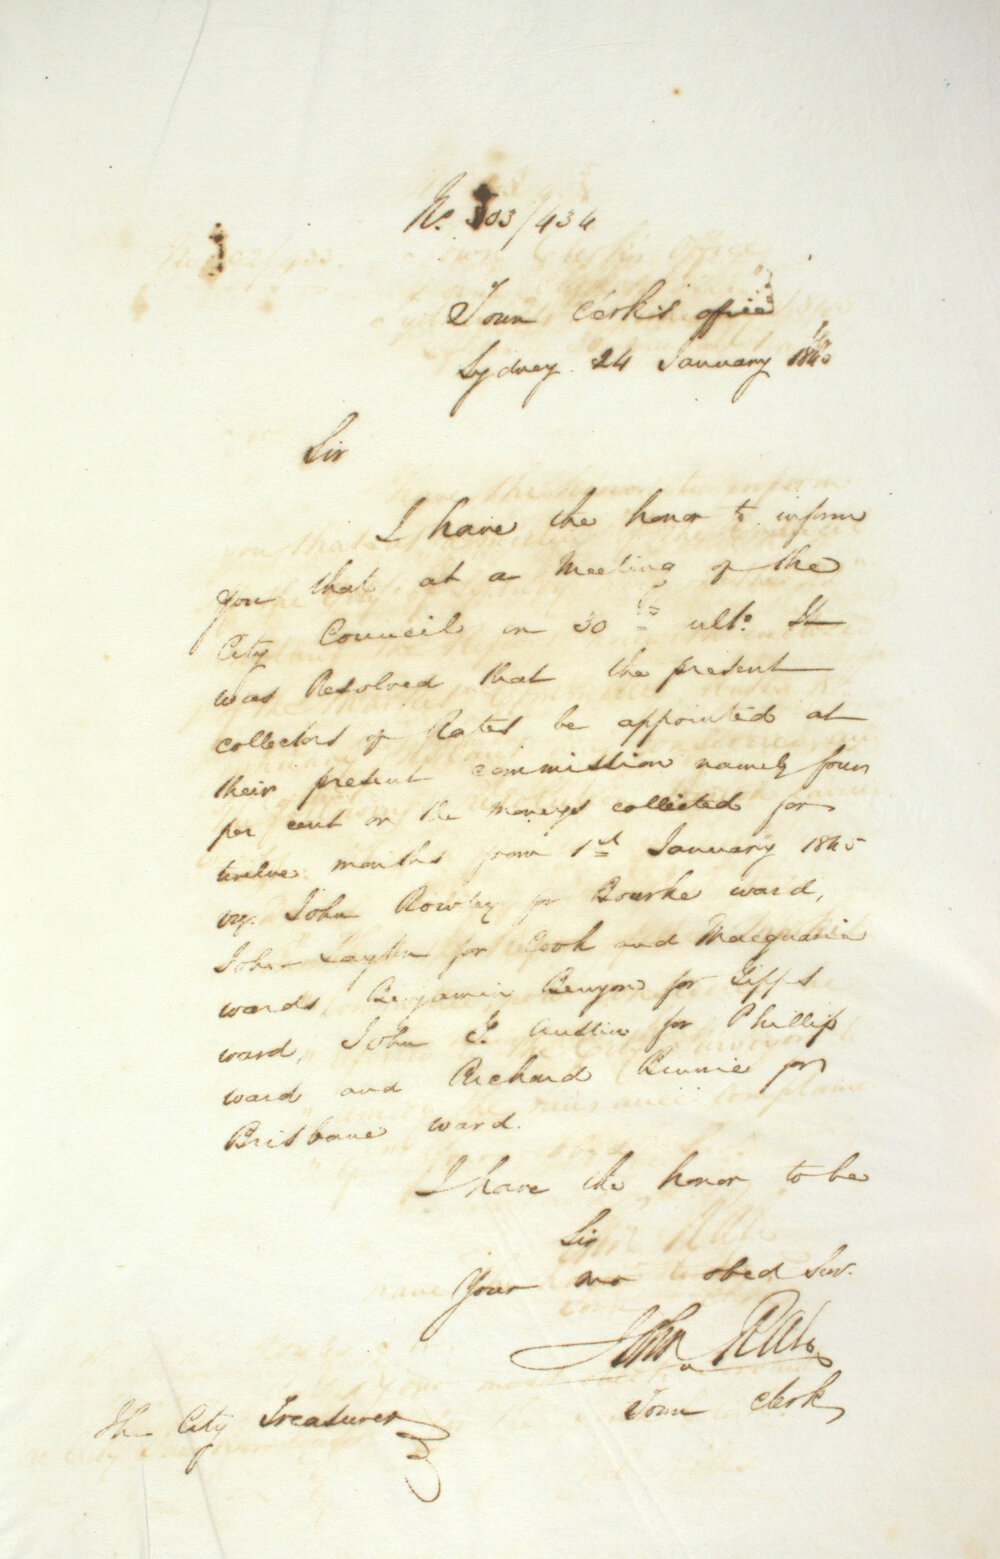 No. 503/434
Town Clerk's office
Sydney 24 January 1845
Sir
I have the honor to inform
you that at a Meeting of the
City Council on 30th ulto. It
was Resolved that the present
collectors of Rates be appointed at
their present commission namely four
per cent on the moneys collected for
twelve months from 1st January 1845
viz. John Rowley for Bourke ward,
John for Cook and Macquarie
wards Benjamin Benyon for Gipps
ward, John Austin for Phillip
ward and Richard Binnie for
Brisbane ward.
I have the honor to be
Sir
Your mo obed Serv.
John Rae
Town Clerk
The City Treasurer